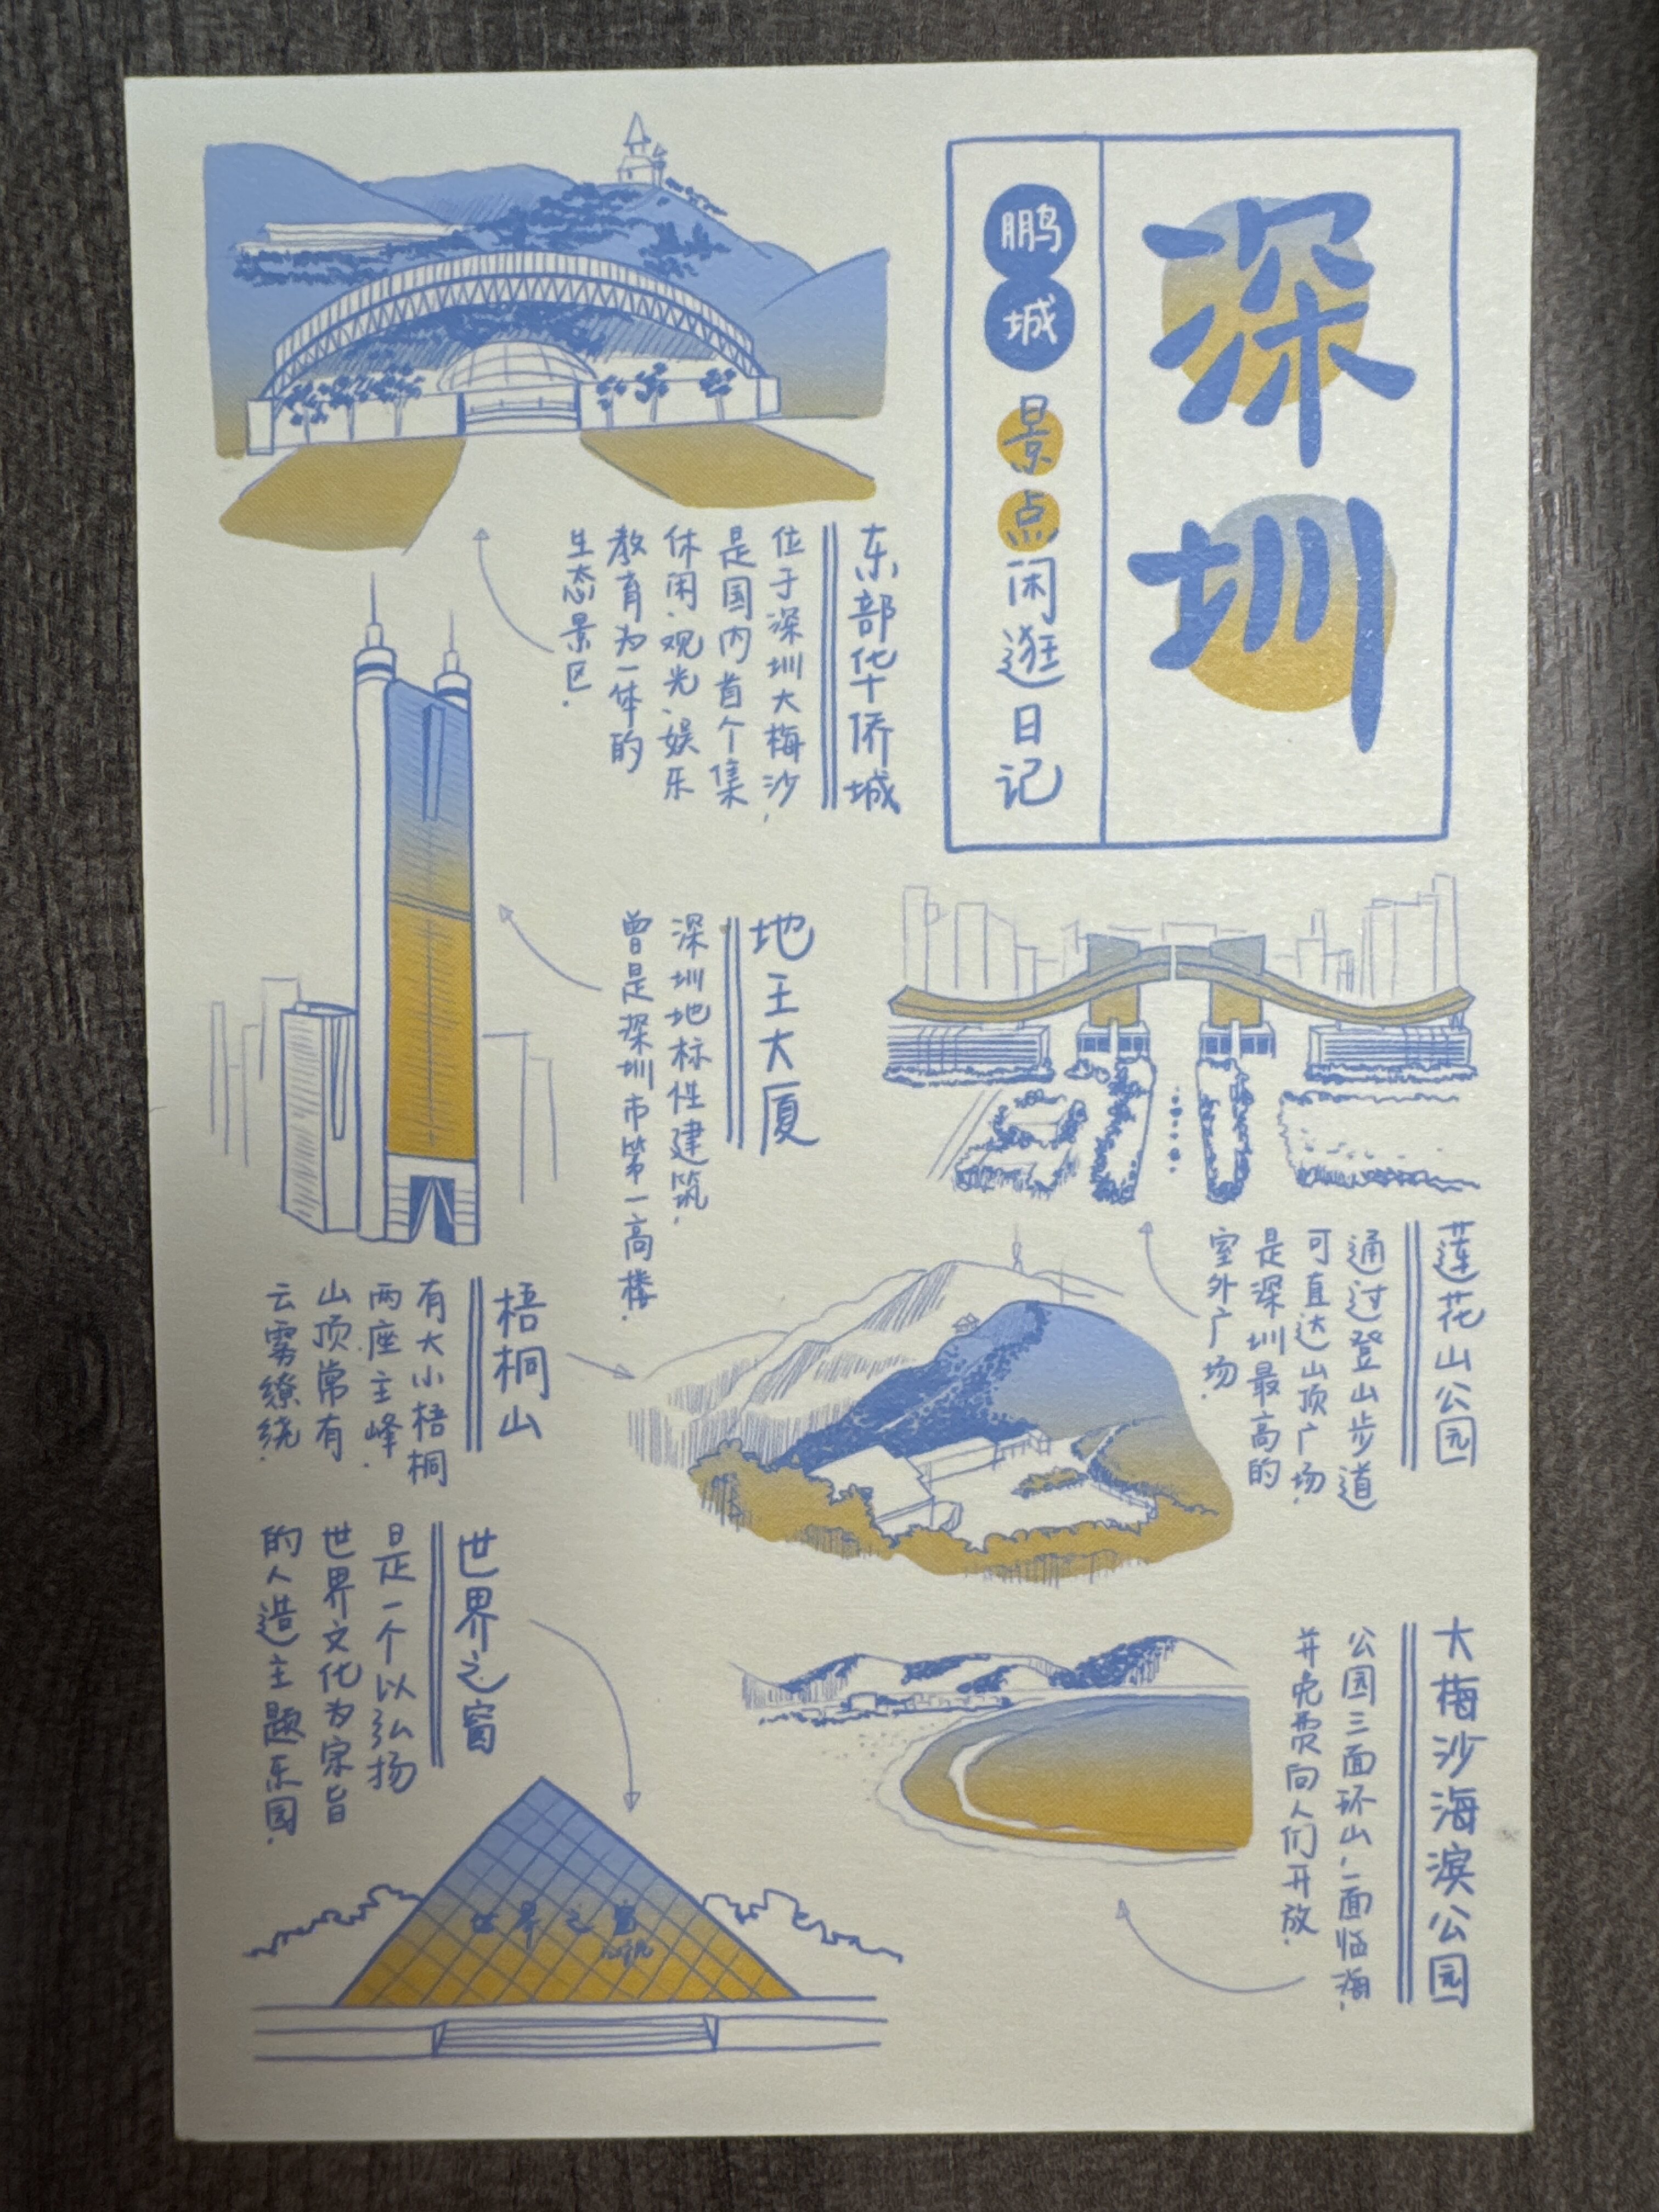 深圳
鹏城景点闲逛日记
东部华侨城
位于深圳大梅沙,
是国内首个集
休闲、观光、娱乐
教育为一体的
生态景区.
地王大厦
深圳地标性建筑,
曾是深圳市第一高楼.
莲花山公园
通过登山步道
可直达山顶广场.
是深圳最高的
室外广场.
梧桐山
有大小梧桐
两座主峰.
山顶常有
云雾缭绕.
世界之窗
是一个以弘扬
世界文化为宗旨
的人造主题乐园.
世界之窗
大梅沙海滨公园
公园三面环山,一面临海,
并免费向人们开放.